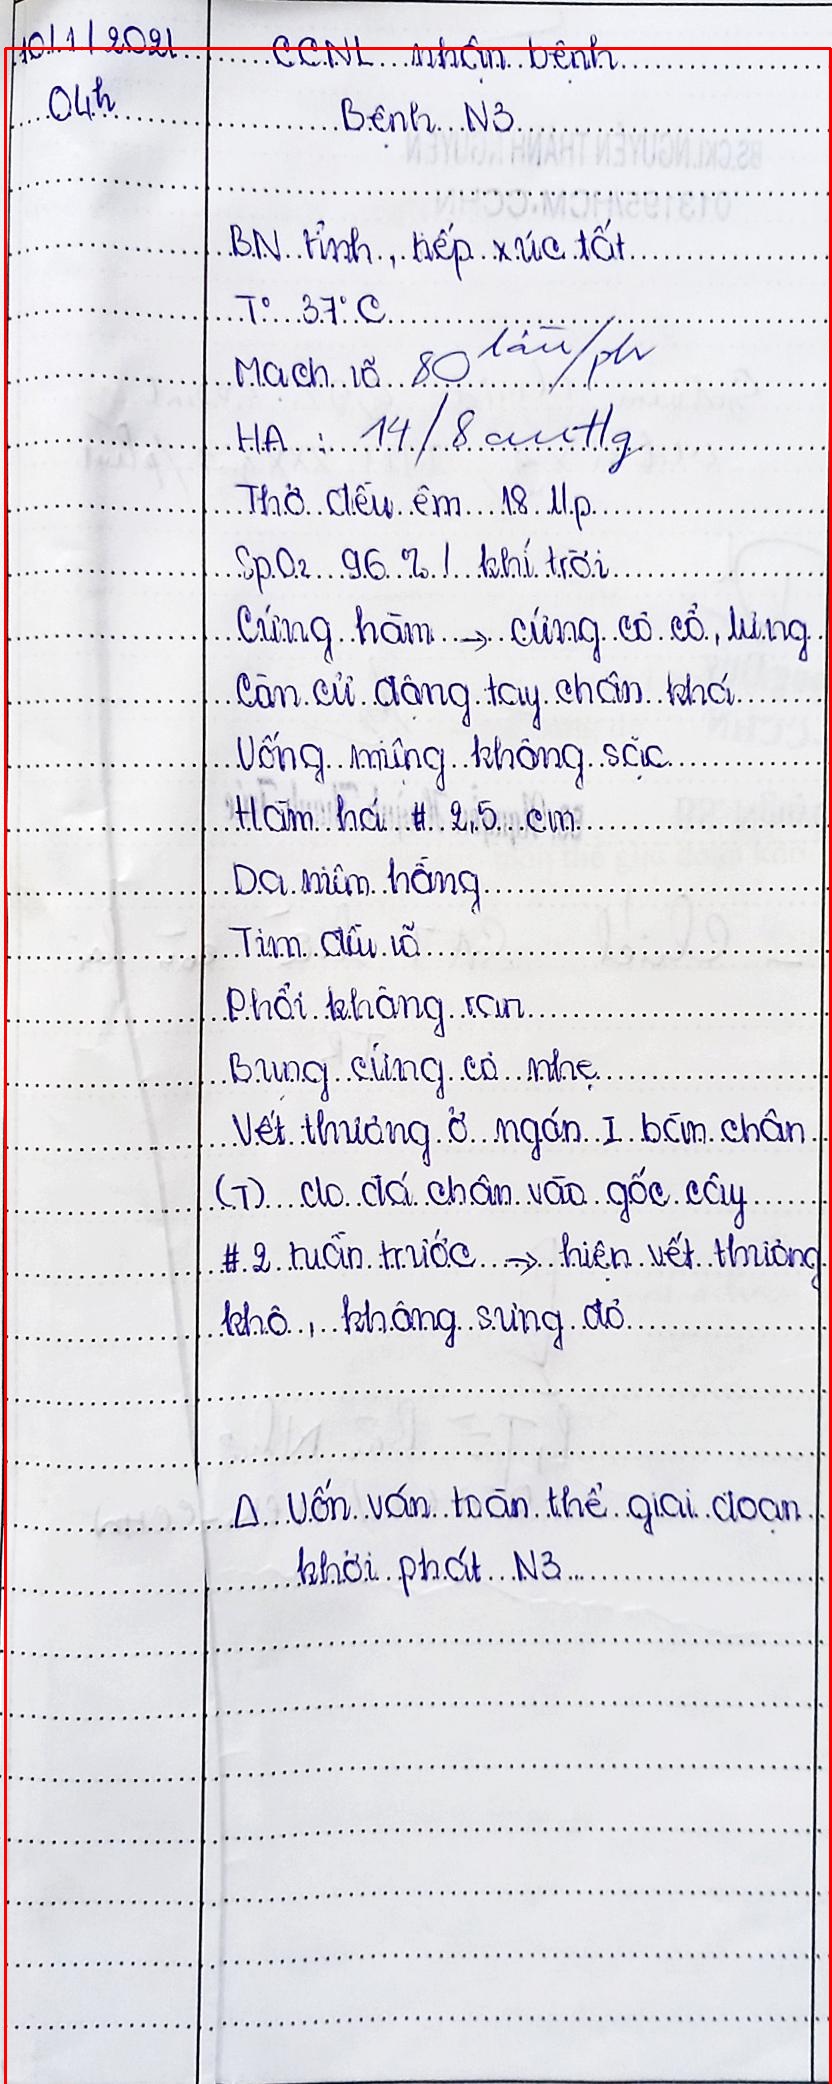 10/1/2021 CCNL nhận bệnh
04h Bệnh N3
BN tỉnh, tiếp xúc tốt
T° 37°C
Mạch rõ 80 lần/ph
HA : 14/8 cmHg
Thở đều êm 18 l/p
SpO2 96% / khí trời
Cứng hàm → cứng cơ cổ, lưng
Còn cử động tay chân khá
Uống miệng không sặc
Hàm há # 2,5 cm
Da niêm hồng
Tim đều rõ
Phổi không ran
Bụng cứng cơ nhẹ
Vết thương ở ngón I bàn chân
(T) do đá chân vào gốc cây
# 2 tuần trước → hiện vết thương
khô, không sưng đỏ
Δ Uốn ván toàn thể giai đoạn
khởi phát N3